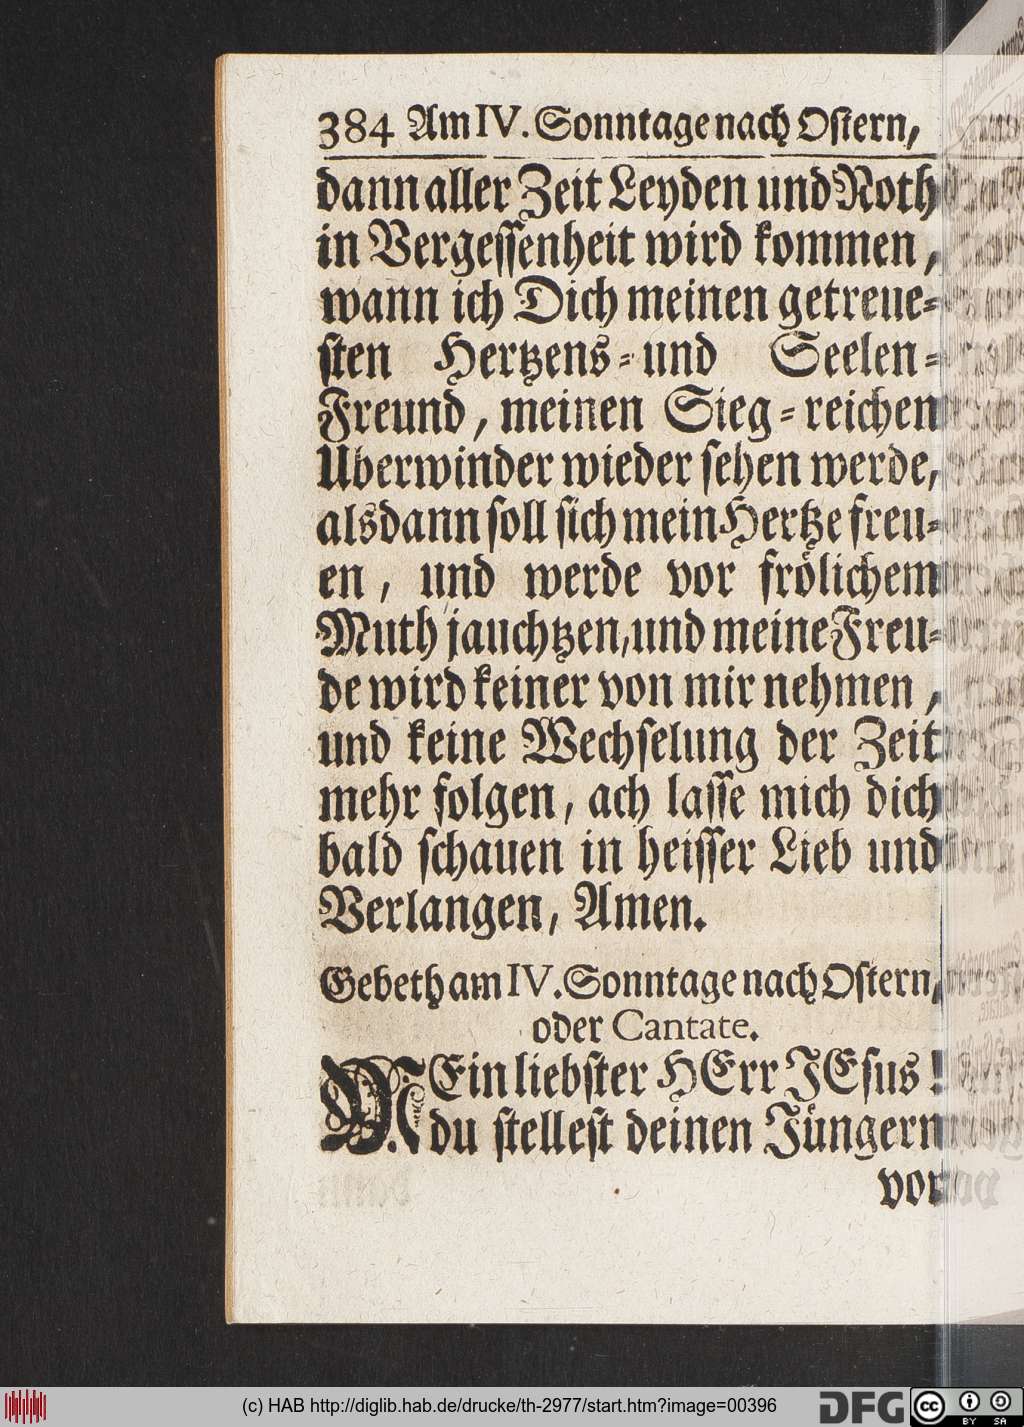 384 Am IV. Sonntage nach Ostern,
dann aller Zeit Leyden und Noth
in Vergessenheit wird kommen,
wann ich Dich meinen getreue-
sten Hertzens- und Seelen-
Freund, meinen Sieg-reichen
Uberwinder wieder sehen werde,
alsdann soll sich mein Hertze freu-
en, und werde vor frölichem
Muth jauchtzen, und meine Freu-
de wird keiner von mir nehmen,
und keine Wechselung der Zeit
mehr folgen, ach lasse mich dich
bald schauen in heisser Lieb und
Verlangen, Amen.
Gebeth am IV. Sonntage nach Ostern,
oder Cantate.
MEin liebster HErr JEsus!
du stellest deinen Jüngern
vor
(c) HAB http://diglib.hab.de/drucke/th-2977/start.htm?image=00396
DFG
cc BY SA